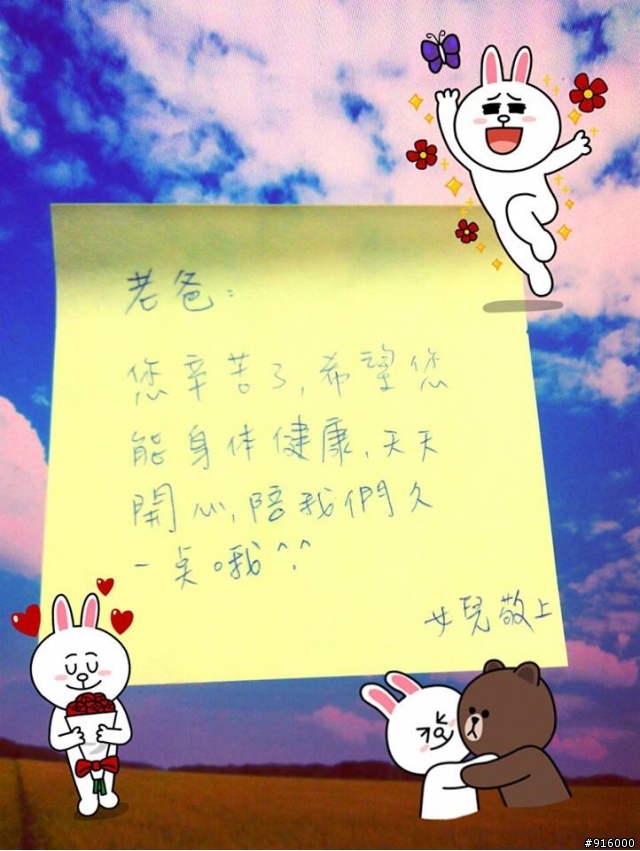 老爸:
您辛苦了,希望您
能身体健康,天天
開心,陪我們久
一点哦^^
女兒敬上
#916000